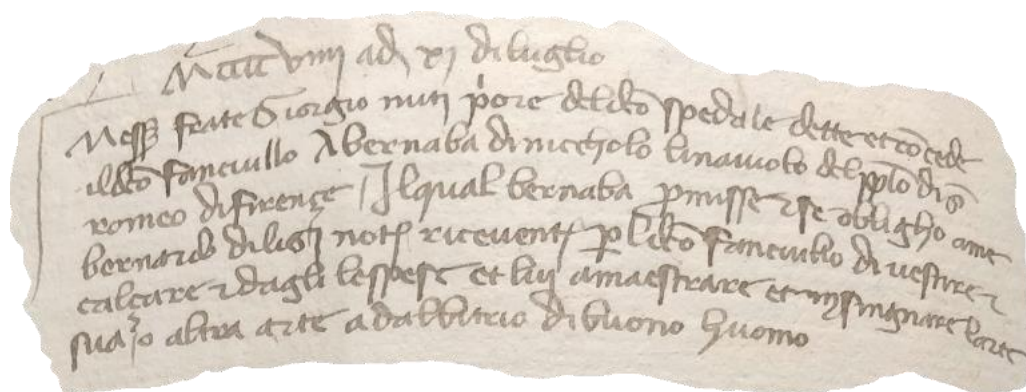 Mcccc viiij adj xj di luglio
Mess frate Giorgio nuti pore del dco spedale dette et concede
il dco fanciullo A bernaba di niccholo linaiuolo del pplo di s
romeo di firenze Il qual bernaba pmisse et se obligho a me
bernardo di not ricevente p lo dco fanciullo di vestire et
calçare et dagli le spese et lui amaestrare et insingnare larte
sua o altra arte ad albitrio di buono huomo